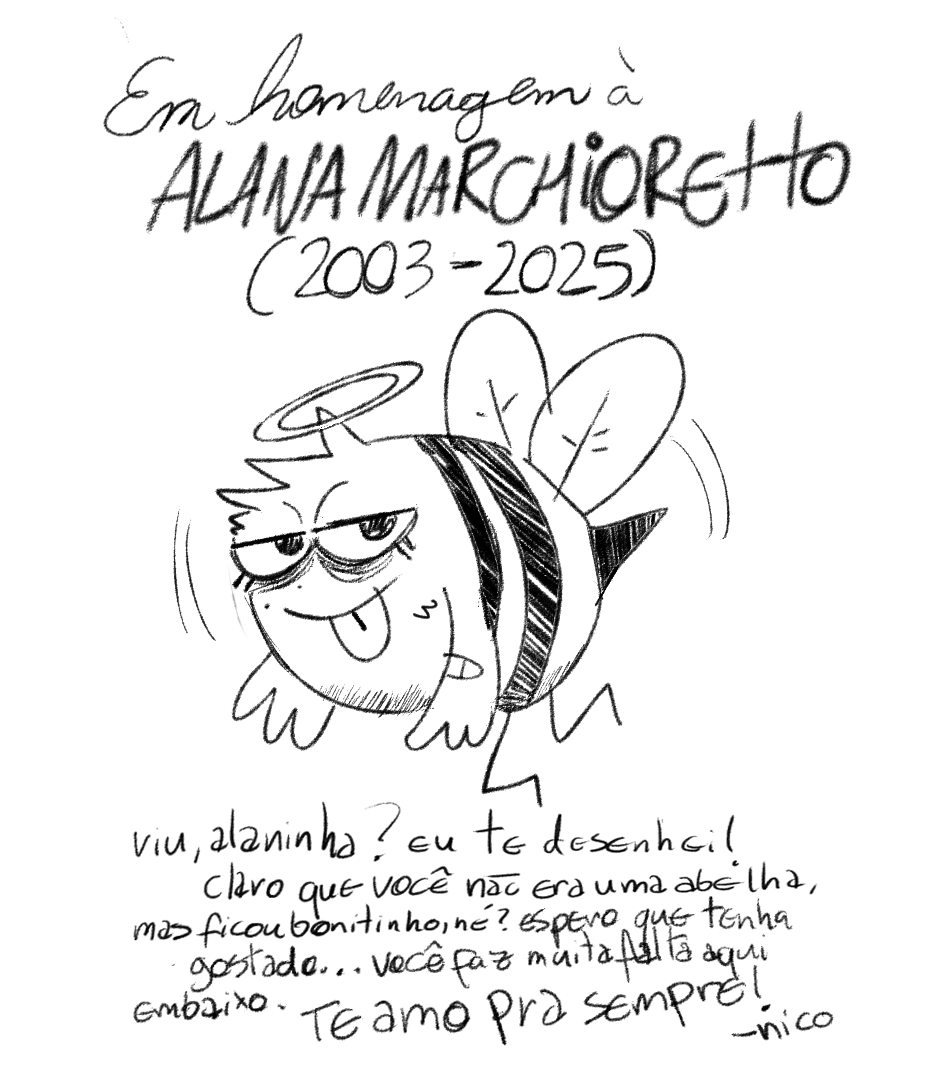 Em homenagem à
ALANA MARCHiORETTO
(2003-2025)
viu, alaninha? eu te desenhei!
claro que você não era uma abelha,
mas ficou bonitinho, né? espero que tenha
gostado... você faz muita falta aqui
embaixo. TE amo pra sempre!
-nico